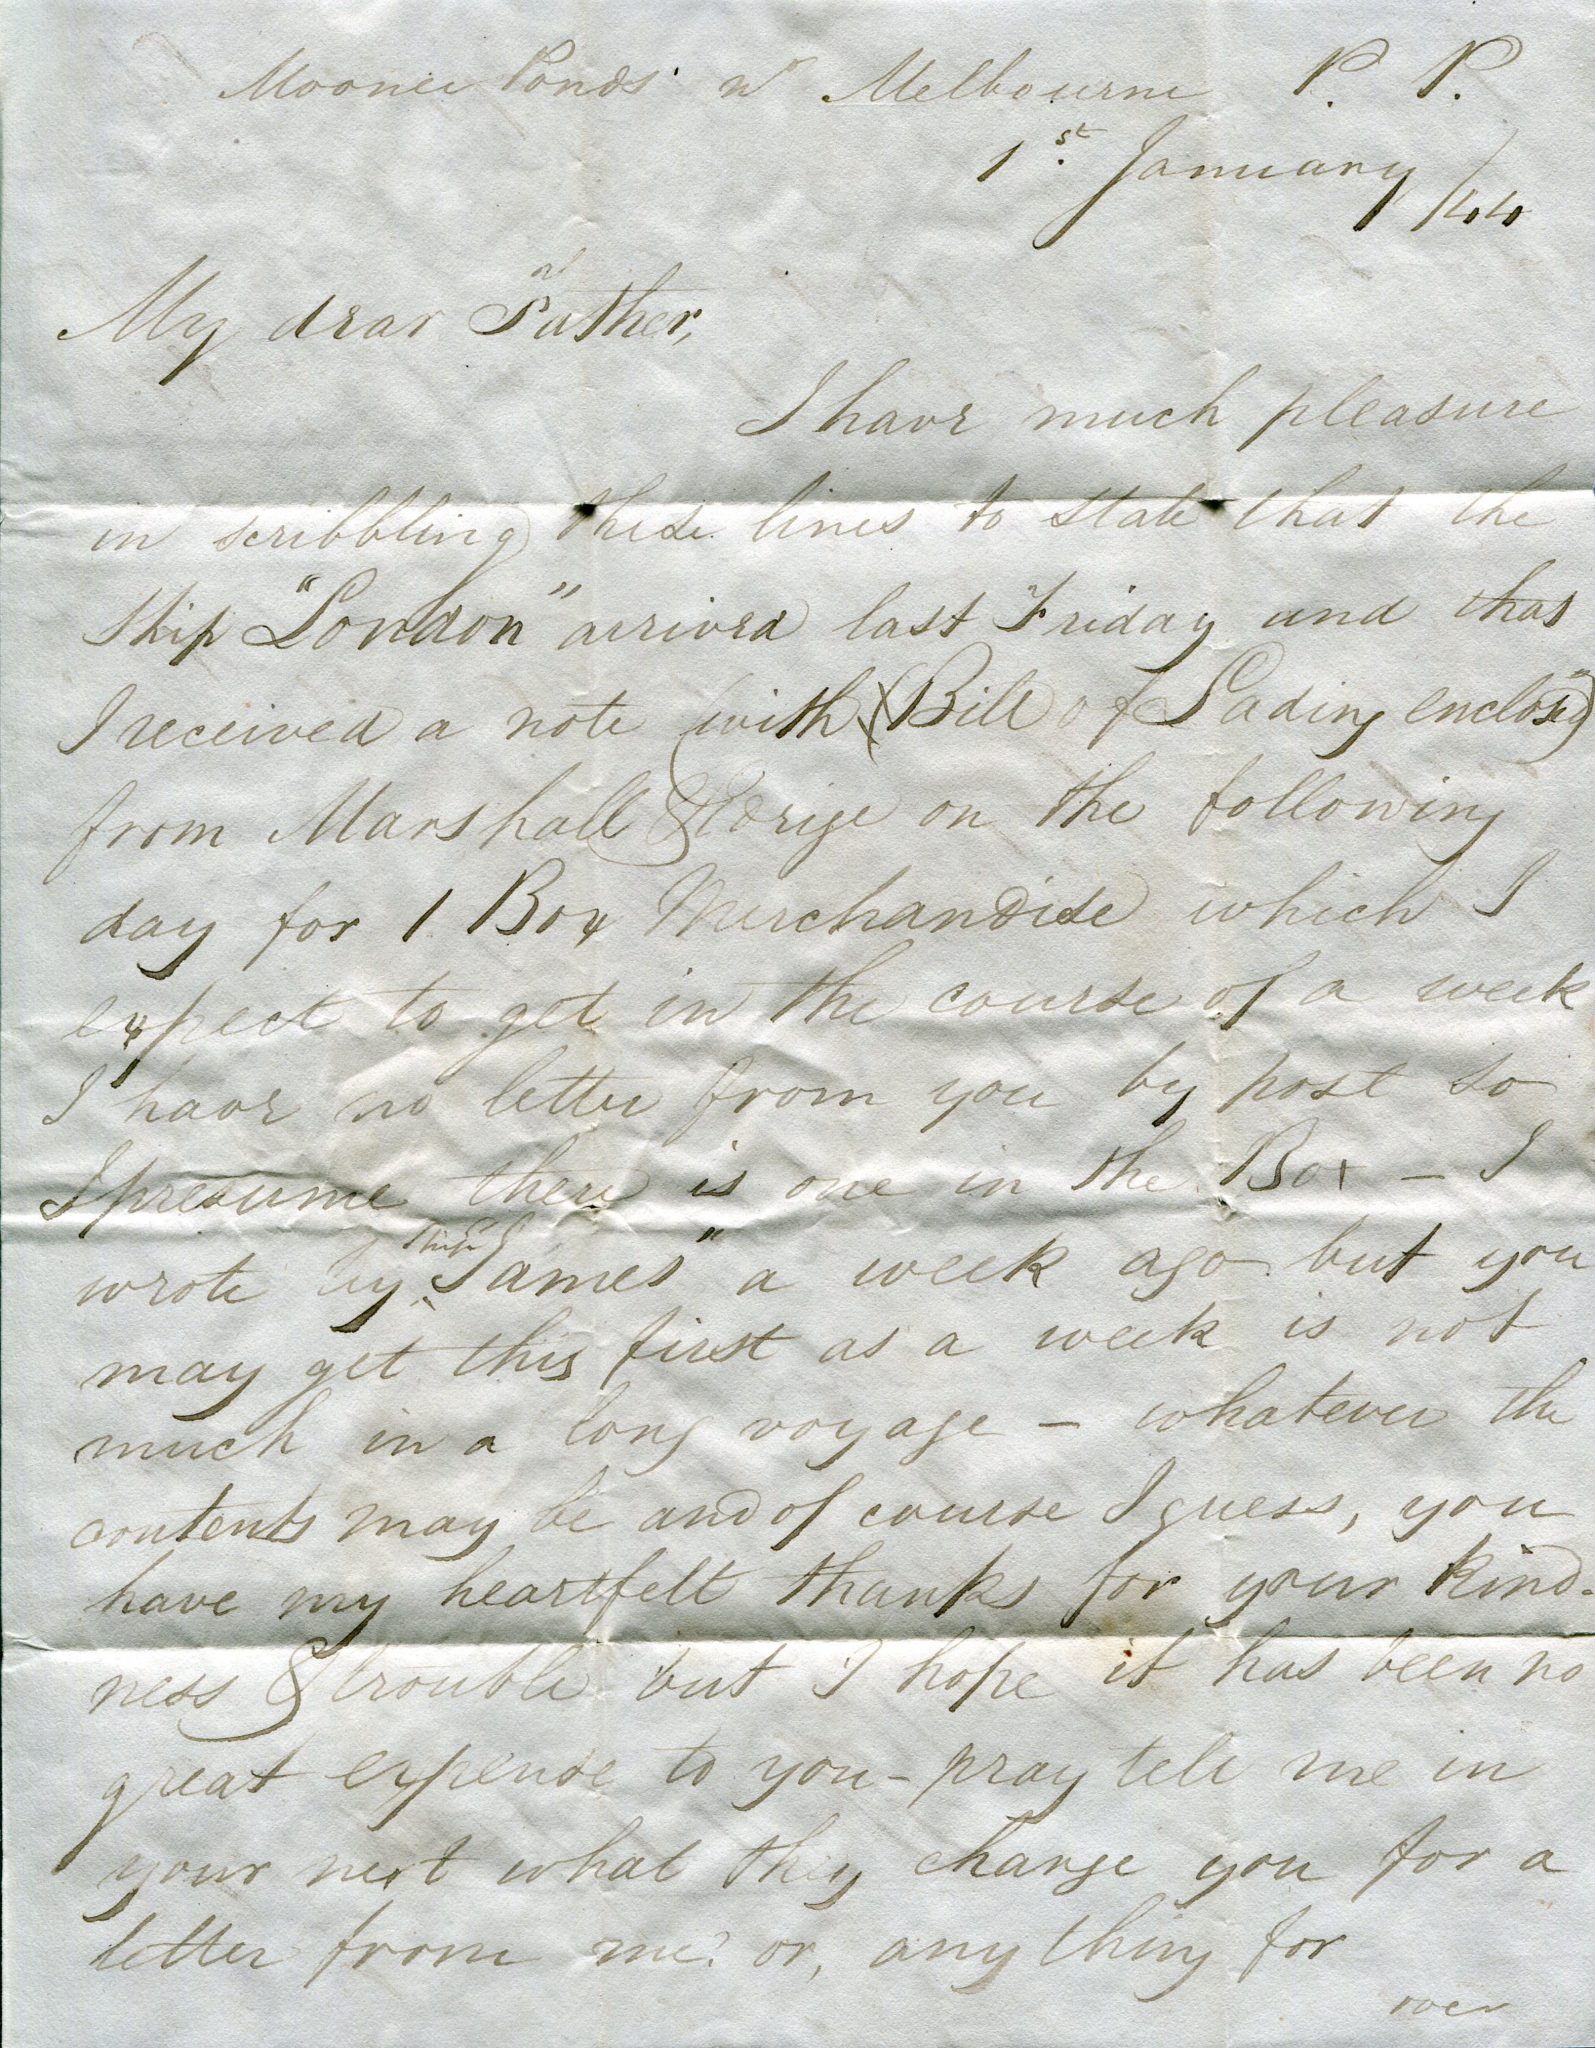 Moonee Ponds nr Melbourne P. P.
1st. January /44
My dear Father,
I have much pleasure
in scribbling these lines to state that the
Ship "London" arrived last Friday and that
I received a note (with Bill of Lading enclosed)
from Marshall & Edrige on the following
day for 1 Box Merchandise which I
expect to get in the course of a week
I have no letter from you by post so
I presume there is one in the Box – I
wrote by Ship "James" a week ago but you
may get this first as a week is not
much in a long voyage – whatever the
contents may be and of course I guess, you
have my heartfelt thanks for your kind-
ness & trouble but I hope it has been no
great expense to you – pray tell me in
your next what they charge you for a
letter from me? or, any thing for
over